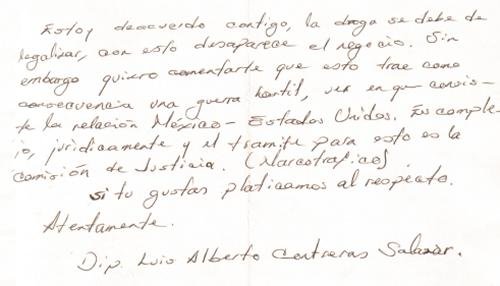 Estoy deacuerdo contigo, la droga se debe de
legalizar, con esto desaparece el negocio. Sin
embargo quiero comentarte que esto trae como
consecuencia una guerra hostil, ver en que consis-
te la relación México - Estados Unidos. Es comple-
jo, juridicamente y el tramite para esto es la
Comisión de Justicia. (Narcotrafico).
si tu gustas platicamos al respecto.
Atentamente.
Dip. Luis Alberto Contreras Salazar.